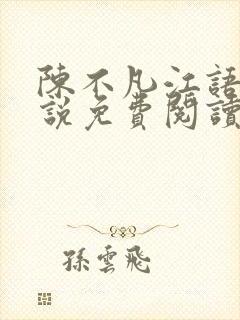 陳不凡江語
說免費閱讀
孫雲飛